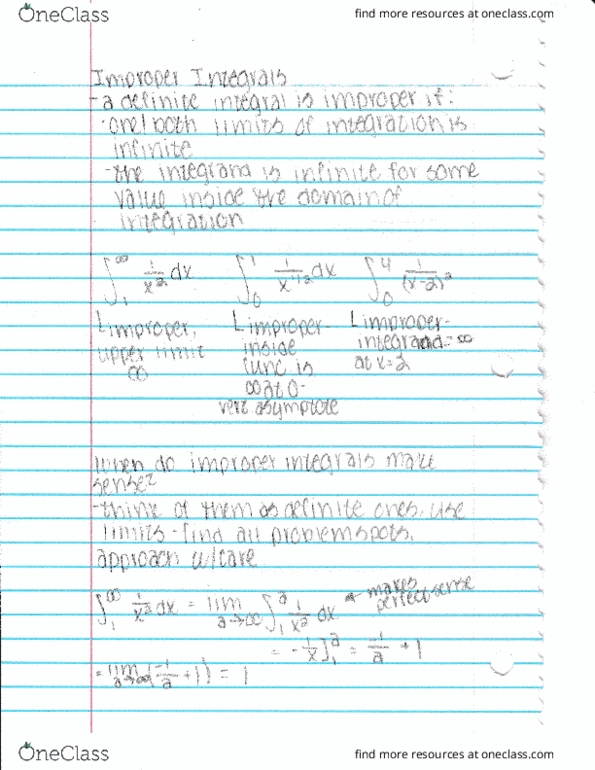 OneClass
find more resources at oneclass.com
Improper Integrals
- a definite integral is improper if:
· one/both limits of integration is
infinite
- the integrand is infinite for some
value inside the domain of
integration
∫₁^∞ 1/x² dx ∫₀¹ 1/x^(1/2) dx ∫₀⁴ 1/(x-2)²
L improper, L improper- L improper-
upper limit inside integrand = ∞
∞ func is at x=2
∞ at 0-
vert asymptote
When do improper integrals make
sense?
- think of them as definite ones, use
limits - find all problem spots,
approach w/care
∫₁^∞ 1/x² dx = lim a→∞ ∫₁^a 1/x² dx ← makes perfect sense
= -1/x]₁^a = -1/a + 1
= lim a→∞ (-1/a + 1) = 1
OneClass
find more resources at oneclass.com